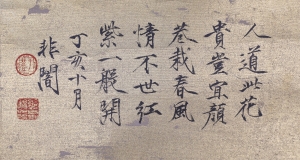 人道此花
貴豈宜顏
巷栽春風
情不世紅
紫一般開
丁亥十月
非闇